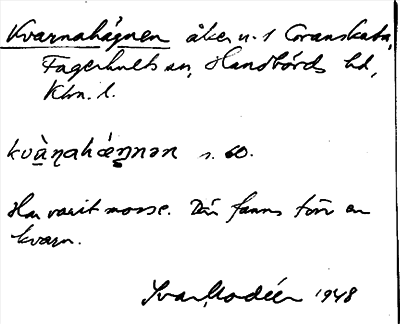 Kvarnahágnen åker n. 1 Granskata,
Fagerhults sn, Handbörds hd,
Klm. l.
kvàṇahǽṇnən s. 60.
Har varit mosse. Där fanns förr en
kvarn.
Ivar Modéer 1948